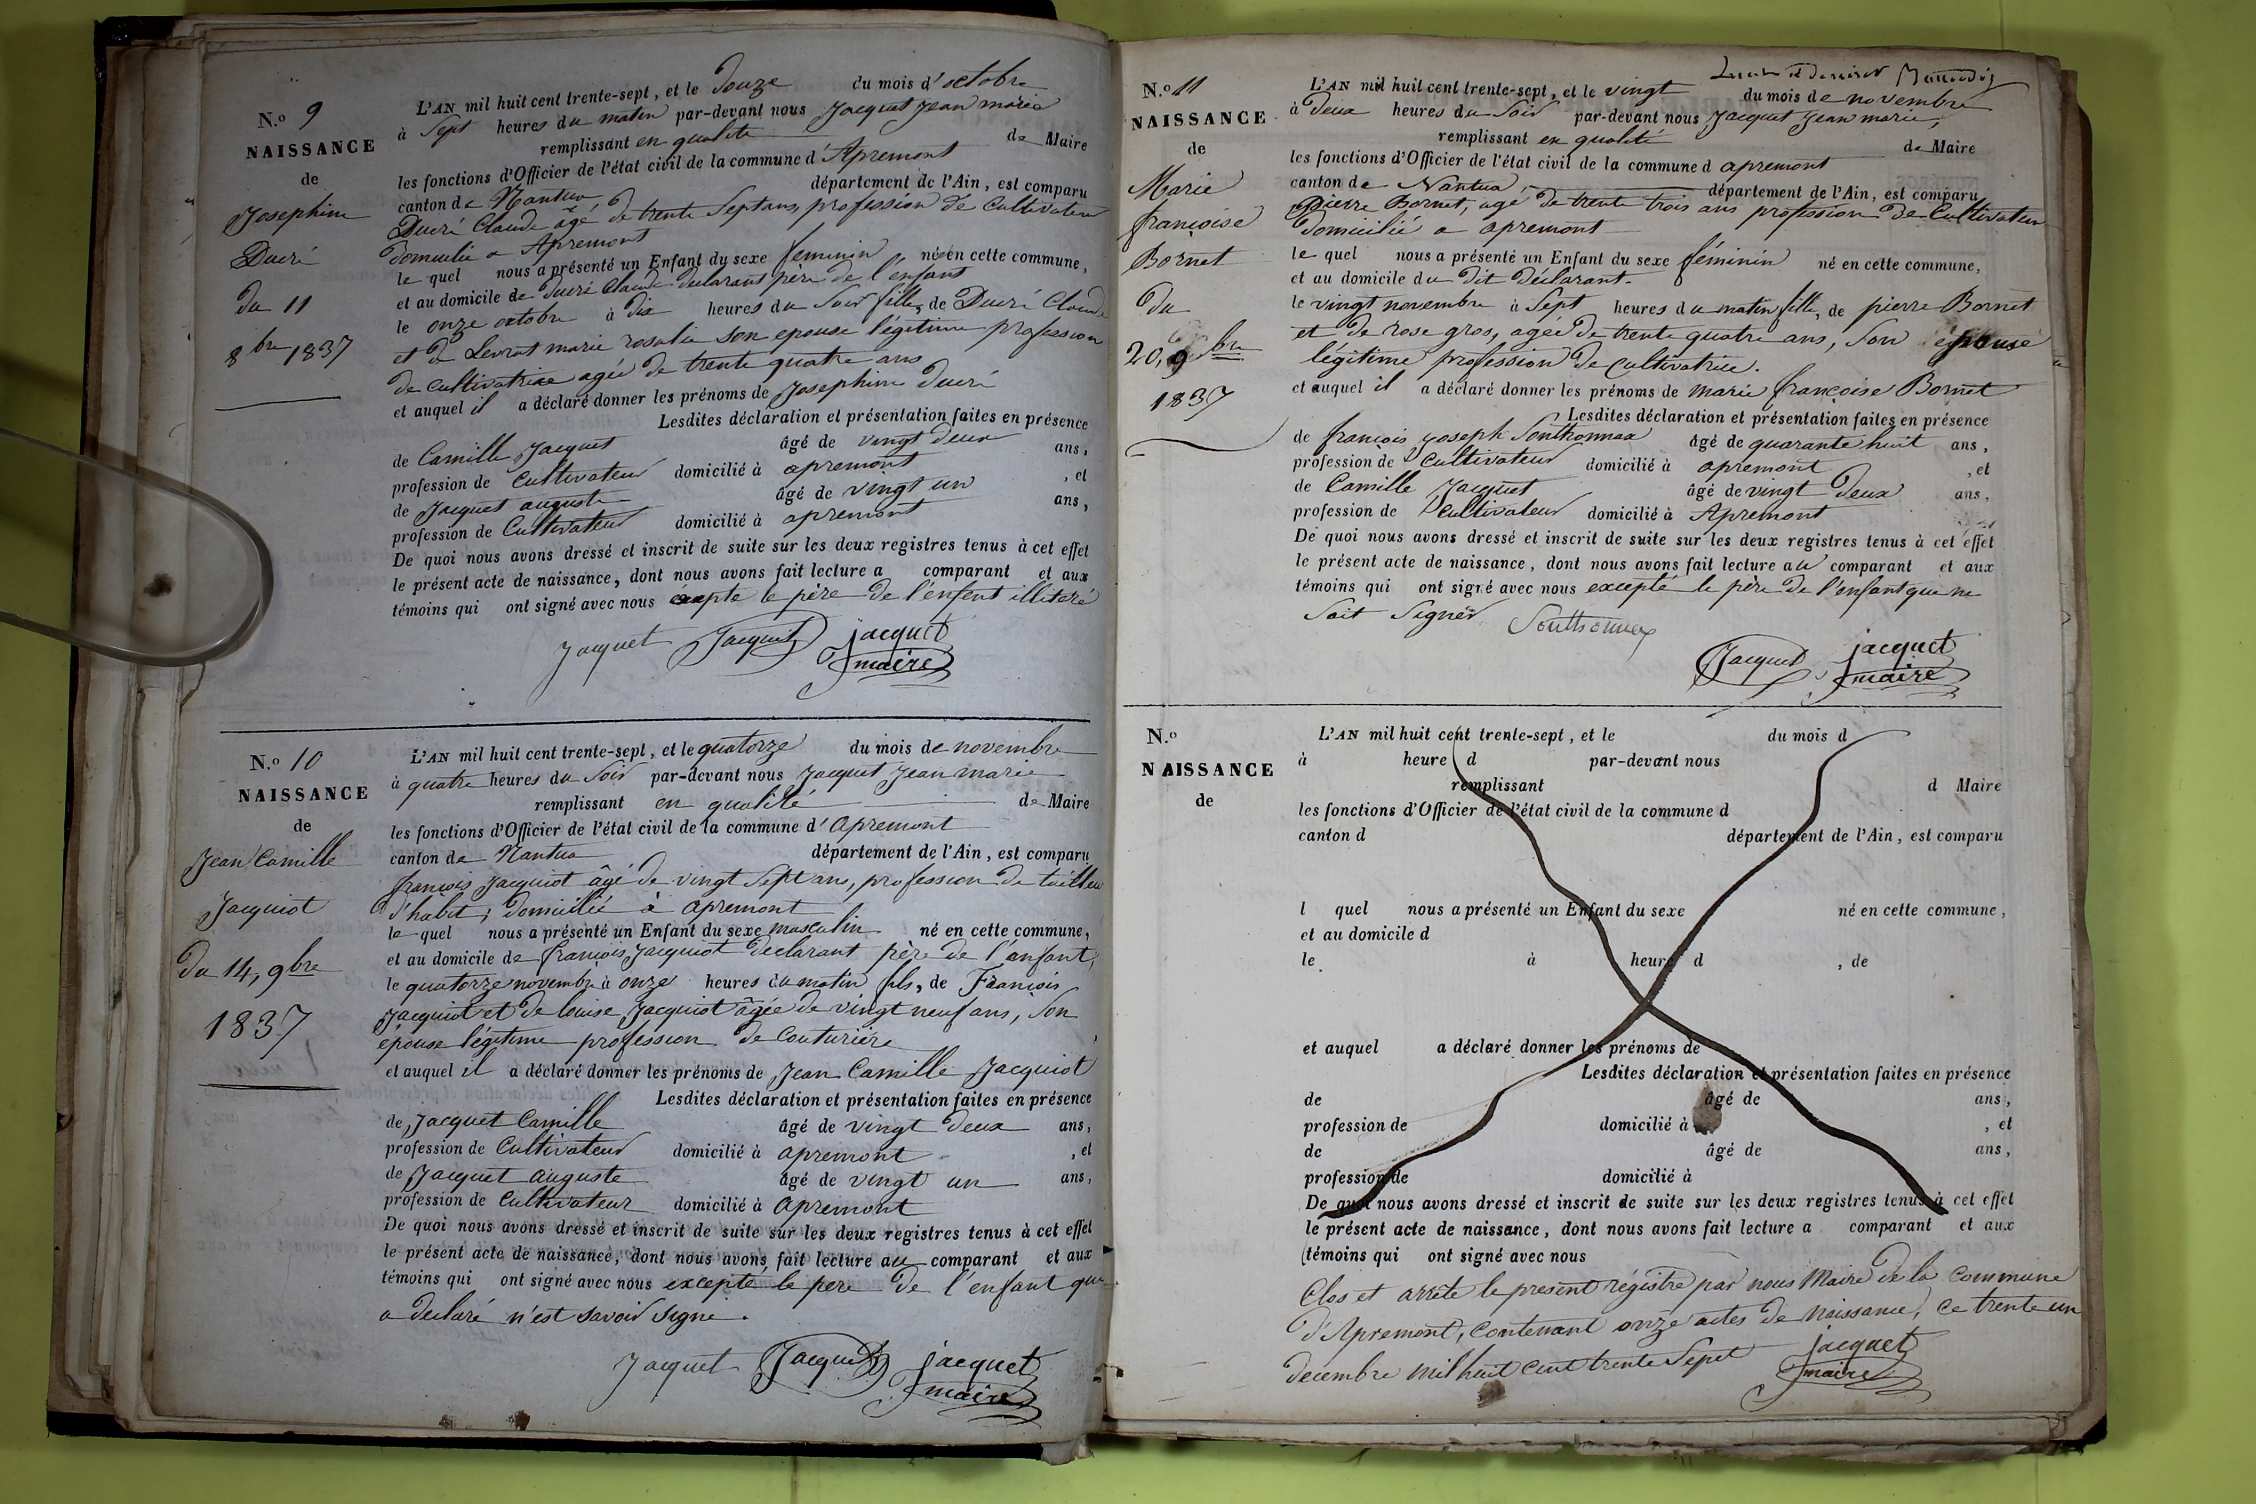 N.o 9
NAISSANCE
de
Josephine
Ducré
du 11
8bre 1837
L'AN mil huit cent trente-sept, et le Douze du mois d'octobre
à Sept heures du matin par-devant nous Jacquet Jean marie
remplissant en qualité de Maire
les fonctions d'Officier de l'état civil de la commune d'Apremont
canton de Nantua département de l'Ain, est comparu
Ducré Claude âgé de trente Sept ans, profession de Cultivateur
domicilié a Apremont
le quel nous a présenté un Enfant du sexe feminin né en cette commune,
et au domicile de Ducré Claude declarant père de l'enfant
le onze octobre à dix heures du Soir fille, de Ducré Claude
et de Levrat marie rosalie son epouse légitime profession
de cultivatrice agée de trente quatre ans
et auquel il a déclaré donner les prénoms de Josephine ducré
Lesdites déclaration et présentation faites en présence
de Camille Jacquet âgé de vingt deux ans,
profession de Cultivateur domicilié à apremont, et
de Jacquet auguste âgé de vingt un ans,
profession de Cultivateur domicilié à apremont
De quoi nous avons dressé et inscrit de suite sur les deux registres tenus à cet effet
le présent acte de naissance, dont nous avons fait lecture a comparant et aux
témoins qui ont signé avec nous le père de l'enfent illiteré
Jacquet Jacquet jacquet
maire
N.o 10
NAISSANCE
de
Jean Camille
Jacquiot
du 14, 9bre
1837
L'AN mil huit cent trente-sept, et le quatorze du mois de novembre
à quatre heures du Soir par-devant nous Jacquet Jean marie
remplissant en qualité de Maire
les fonctions d'Officier de l'état civil de la commune d'Apremont
canton de Nantua département de l'Ain, est comparu
françois Jacquiot âgé de vingt Sept ans, profession de tailleur
d'habit, domicilié à apremont
le quel nous a présenté un Enfant du sexe masculin né en cette commune,
et au domicile de françois Jacquiot declarant père de l'anfant,
le quatorze novembre à onze heures du matin fils, de François
Jacquiot et de louise Jacquiot âgée de vingt neuf ans, Son
épouse légitime profession de Couturière
et auquel il a déclaré donner les prénoms de Jean Camille Jacquiot
Lesdites déclaration et présentation faites en présence
de Jacquet Camille âgé de vingt deux ans,
profession de Cultivateur domicilié à apremont, et
de Jacquet auguste âgé de vingt un ans,
profession de Cultivateur domicilié à apremont
De quoi nous avons dressé et inscrit de suite sur les deux registres tenus à cet effet
le présent acte de naissance, dont nous avons fait lecture au comparant et aux
témoins qui ont signé avec nous excepté le pere de l'enfant que
a declaré n'est savoir signe.
Jacquet Jacquet jacquet
maire
N.o 11
NAISSANCE
de
Marie
françoise
Bornet
du
20, 9bre
1837
L'AN mil huit cent trente-sept, et le vingt du mois de novembre
à deux heures du Soir par-devant nous Jacquet Jean marie,
remplissant en qualité de Maire
les fonctions d'Officier de l'état civil de la commune d apremont
canton de Nantua département de l'Ain, est comparu
pierre Bornet, agé de trente trois ans profession de Cultivateur
domicilié a apremont
le quel nous a présenté un Enfant du sexe féminin né en cette commune,
et au domicile du dit déclarant.
le vingt novembre à Sept heures du matin fille, de pierre Bornet
et de rose gros, agée de trente quatre ans, Son épouse
légitime profession de cultivatrice.
et auquel il a déclaré donner les prénoms de marie françoise Bornet
Lesdites déclaration et présentation faites en présence
de françois joseph Sonthonnax âgé de quarante huit ans,
profession de Cultivateur domicilié à apremont, et
de Camille Jacquet âgé de vingt deux ans,
profession de Cultivateur domicilié à Apremont
De quoi nous avons dressé et inscrit de suite sur les deux registres tenus à cet effet
le présent acte de naissance, dont nous avons fait lecture au comparant et aux
témoins qui ont signé avec nous excepté le père de l'enfant que ne
Sait Signer Sonthonnax
Jacquet jacquet
maire
N.o
NAISSANCE
de
L'AN mil huit cent trente-sept, et le du mois d
à heure d par-devant nous
remplissant d Maire
les fonctions d'Officier de l'état civil de la commune d
canton d département de l'Ain, est comparu
l quel nous a présenté un Enfant du sexe né en cette commune,
et au domicile d
le à heure d , de
et auquel a déclaré donner les prénoms de
Lesdites déclaration et présentation faites en présence
de âgé de ans,
profession de domicilié à , et
de âgé de ans,
profession de domicilié à
De quoi nous avons dressé et inscrit de suite sur les deux registres tenus à cet effet
le présent acte de naissance, dont nous avons fait lecture a comparant et aux
témoins qui ont signé avec nous
Clos et arrêté le present régistre par nous Maire de la Commune
d'Apremont, contenant onze actes de naissance, Ce trente un
decembre mil huit cent trente Sept jacquet
maire